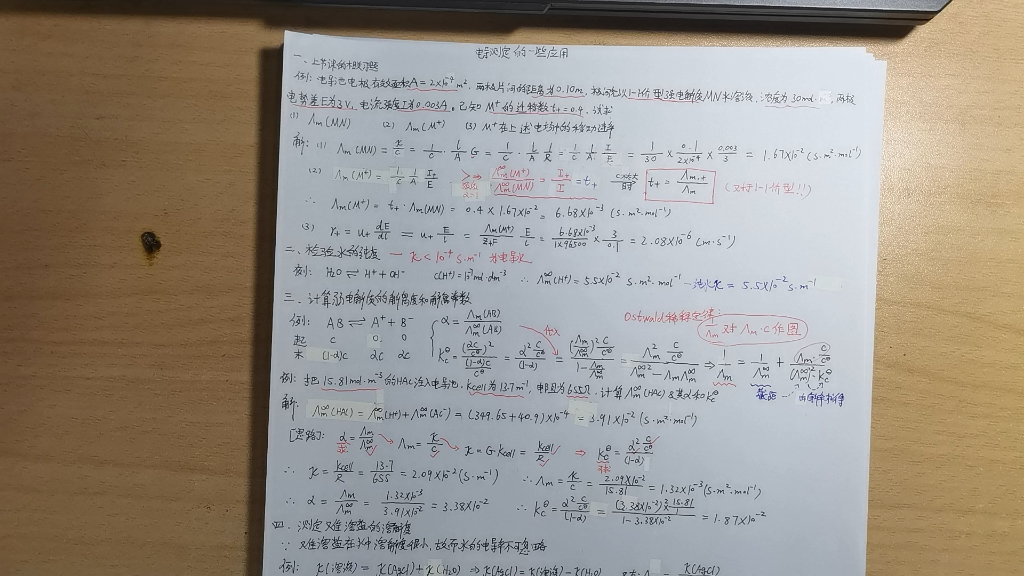 电导测定的一些应用
一、上节课的相关习题
例: 电导池电极有效面积A=2×10⁻⁴m², 两极片间的距离为0.10m, 极间充以1-1价型强电解质MN水溶液, 浓度为30mol·m⁻³, 两极
电势差E为3V, 电流强度I为0.003A, 已知M⁺的迁移数t₊=0.4, 试求
(1) Λm(MN) (2) Λm(M⁺) (3) M⁺在上述电场中的移动速率
解: (1) Λm(MN) = κ/c = 1/c · l/A G = 1/c · l/A · 1/R = 1/c · l/A · I/E = 1/30 × 0.1/2×10⁻⁴ × 0.003/3 = 1.67×10⁻² (S·m²·mol⁻¹)
(2) Λm(M⁺) = 1/c l/A I₊/E Λm∞(M⁺)/Λm∞(MN) = I₊/I = t₊ t₊ = Λm,+/Λm (对于1-1价型!!)
∴ Λm(M⁺) = t₊ · Λm(MN) = 0.4 × 1.67×10⁻² = 6.68×10⁻³ (S·m²·mol⁻¹)
(3) r₊ = u₊ dE/dl = u₊ E/l = Λm(M⁺)/z₊F E/l = 6.68×10⁻³/1×96500 × 3/0.1 = 2.08×10⁻⁶ (m·s⁻¹)
二、检验水的纯度 — κ < 10⁻⁴ S·m⁻¹ 为电导水
例: H₂O ⇌ H⁺+OH⁻ c(H⁺)=10⁻⁷mol·dm⁻³ ∴ Λm∞(H₂O) = 5.5×10⁻² S·m²·mol⁻¹ 纯水κ = 5.5×10⁻² S·m⁻¹
三、计算弱电解质的解离度和解离常数
Ostwald稀释定律:
Λm对Λm·c作图
例: AB ⇌ A⁺ + B⁻ α = Λm(AB)/Λm∞(AB)
起 c 0 0
末 (1-α)c αc αc Kc⊖ = (αc/c⊖)²/((1-α)c/c⊖) = α² c/c⊖/(1-α) = (Λm/Λm∞)² c/c⊖/(1-Λm/Λm∞) = Λm² c/c⊖/(Λm∞² - ΛmΛm∞) ⇒ 1/Λm = 1/Λm∞ + Λm c/c⊖/((Λm∞)² Kc⊖)
截距 由斜率求得
例: 把15.81mol·m⁻³的HAc注入电导池, Kcell为13.7m⁻¹, 电阻为655Ω. 计算Λm∞(HAc)及其α和Kc⊖
解: Λm∞(HAc) = Λm∞(H⁺)+Λm∞(AC⁻) = (349.65+40.9)×10⁻⁴ = 3.91×10⁻² (S·m²·mol⁻¹)
[思路]: α = Λm/Λm∞ → Λm = κ/c → κ = G·Kcell = Kcell/R ⇒ Kc⊖ = α² c/c⊖/(1-α)
∴ κ = Kcell/R = 13.7/655 = 2.09×10⁻² (S·m⁻¹) ∴ Λm = κ/c = 2.09×10⁻²/15.81 = 1.32×10⁻³ (S·m²·mol⁻¹)
∴ α = Λm/Λm∞ = 1.32×10⁻³/3.91×10⁻² = 3.38×10⁻² ∴ Kc⊖ = α² c/c⊖/(1-α) = (3.38×10⁻²)² × 15.81/1 / 1-3.38×10⁻² = 1.87×10⁻²
四、测定难溶盐的溶解度
∵ 难溶盐在水中溶解度很小, 故而水的电导率不可忽略
例: κ(溶液) = κ(AgCl)+κ(H₂O) ⇒ κ(AgCl) = κ(溶液)-κ(H₂O) κ(AgCl)